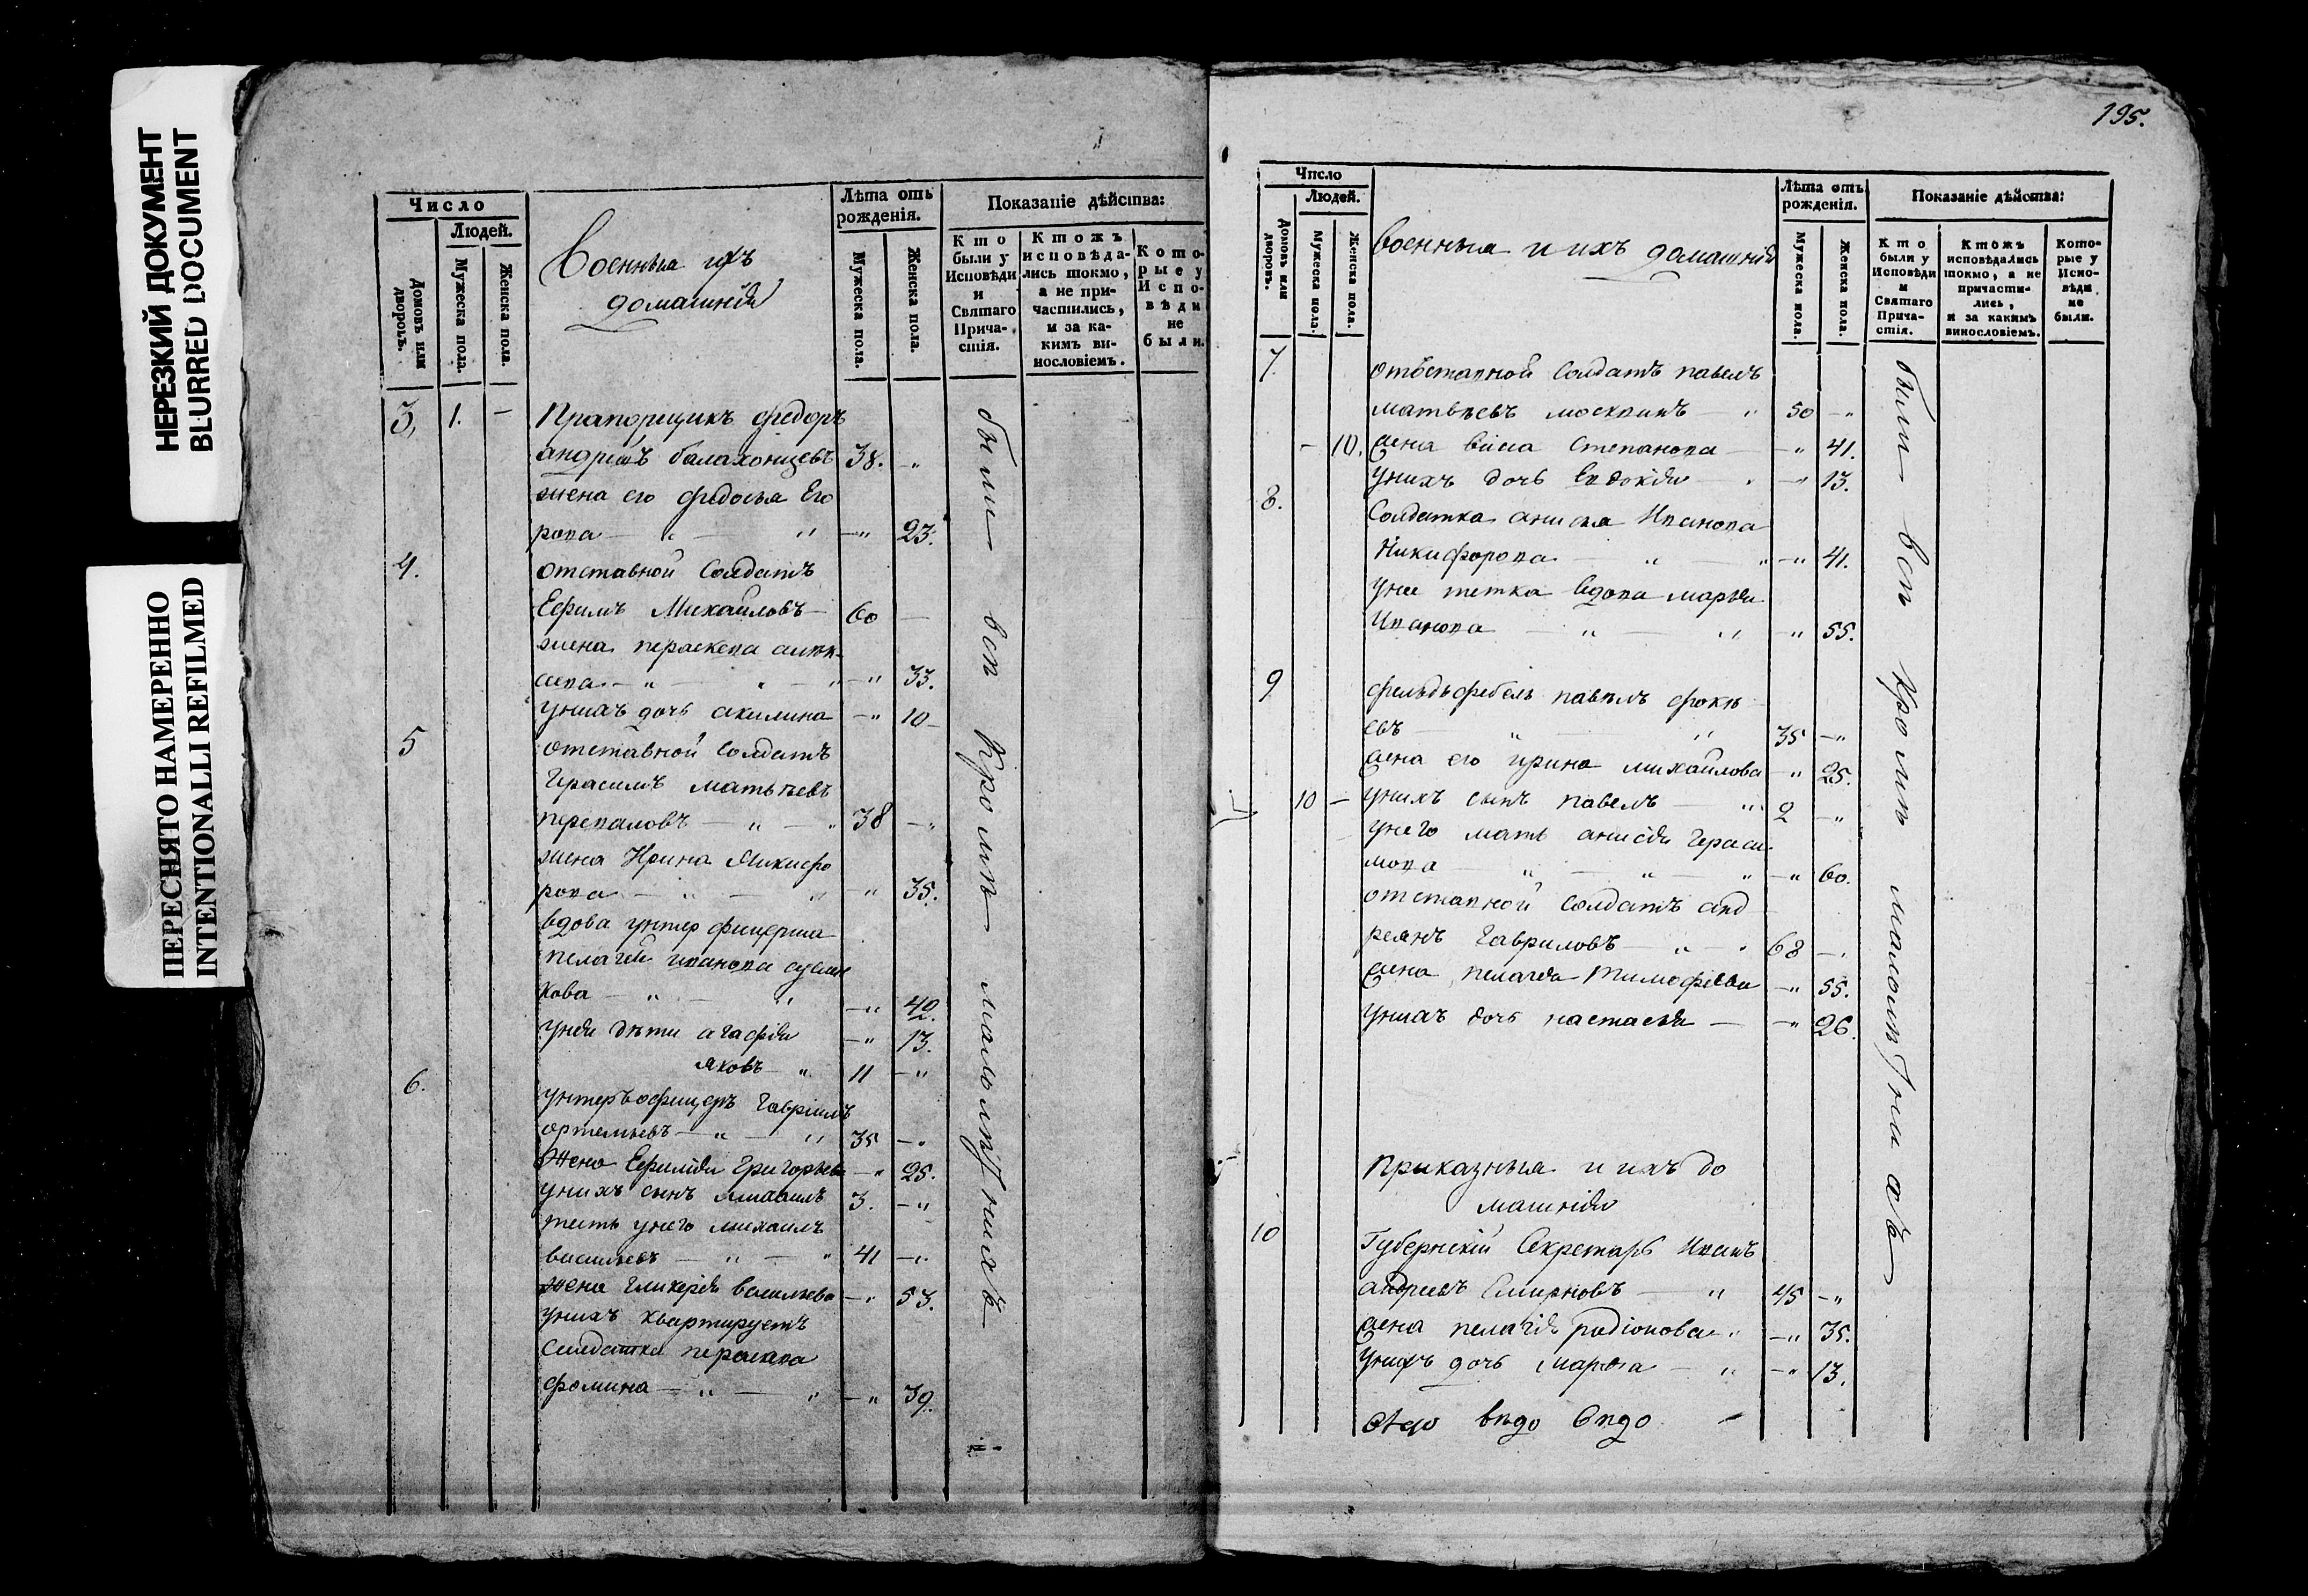 НЕРЕЗКИЙ ДОКУМЕНТ
BLURRED DOCUMENT
ПЕРЕСНЯТО НАМЕРЕННО
INTENTIONALLI REFILMED
Число
Людей.
Домовъ или дворовъ.
Мужеска пола.
Женска пола.
Военныя ихъ
домашнiи
Лѣта отъ
рожденiя.
Мужеска пола.
Женска пола.
Показанiе дѣйства:
Кто
были у
Исповѣди
и
Святаго
Прича-
стiя.
Ктожъ
исповѣда-
лись токмо,
а не при-
частились,
и за ка-
кимъ ви-
нословiемъ.
Кото-
рые у
Испо-
вѣди
не
были.
3, 1. – Прапорщикъ федоръ
андрiевъ балахонцевъ 38. – "
жена его федосья Его
рова – " – " – " 23.
4. отставной Солдатъ
Ефимъ Михайловъ – 60 –
жена пераскева алек-
аева – " – " – " 33.
унихъ дочь акилина – " 10 –
5 отставной Солдатъ
Герасимъ матвѣевъ
перепаловъ – " – " 38 – "
жена Ирина Никифо
рова – " – " – " 35.
вдова унтер фицерша
пелагея иванова
кова – " – " – " 42.
унея дѣти агафiя – " 13.
яковъ – " 11 – "
6. унтеръ офицеръ Гаврiилъ
артемьевъ – " – " 35 – "
Жена Ефимiя Григорьева – " 25.
унихъ сынъ михаилъ 3. – "
тесть унего михаилъ
васильевъ – " – " 41 – "
жена гликерiя васильева – " 53.
унихъ квартируетъ
Солдатка
фомина – " – " – " 39.
были всѣ кромѣ малолѣтнихъ
195.
Число
Людей.
Домовъ или дворовъ.
Мужеска пола.
Женска пола.
военныя и ихъ домашнiи
Лѣта отъ
рожденiя.
Мужеска пола.
Женска пола.
Показанiе дѣйства:
Кто
были у
Исповѣди
и
Святаго
Прича-
стiя.
Ктожъ
исповѣдались
токмо, а не
причасти-
лись,
и за какимъ
винословiемъ.
Кото-
рые у
Испо-
вѣди
не
были.
7. отвставной Солдатъ павелъ
матвѣевъ москвинъ – " 50 – "
– 10. жена васа Степанова – " 41.
унихъ дочь Евдокiя – " 13.
8. Солдатка анисья Иванова
Никифорова – " – " – " 41.
унее тетка вдова марья
Иванова – " – " – " 55.
9 фельдьфебель павелъ фокѣ
евъ – " – " 35 – "
жена его ирина михайлова – " 25.
10 – унихъ сынъ павелъ – " 2 – "
унего мать анисiя гераси
мова – " – " – " 60.
отставной Солдатъ анд
реянъ Гавриловъ – " – " 68 – "
жена пелагея Тимофѣева – " 55.
унихъ дочь настасья – – " 26.
Приказныя и ихъ до
машнiи
10 Губернскiй Секретарь Иванъ
андреевъ Смирновъ – " 45 – "
жена пелагiя родiонова – " – " 35.
унихъ дочь марфа – " – " 13.
были всѣ кромѣ малолѣтнихъ